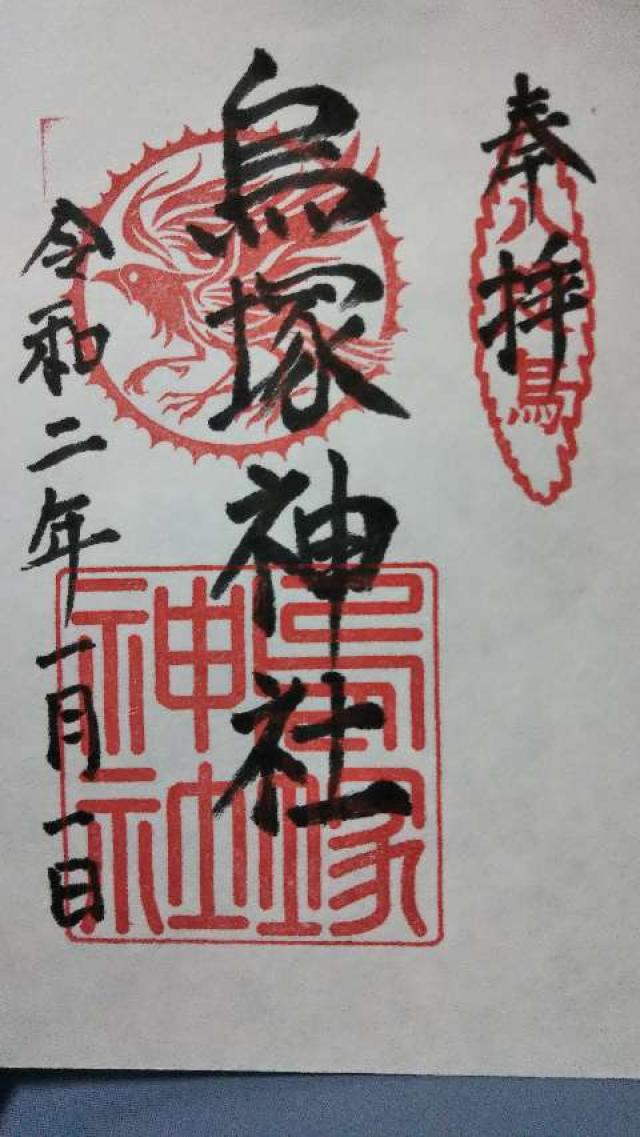 奉拝
八烏
烏塚神社
烏塚
神社
令和二年一月一日